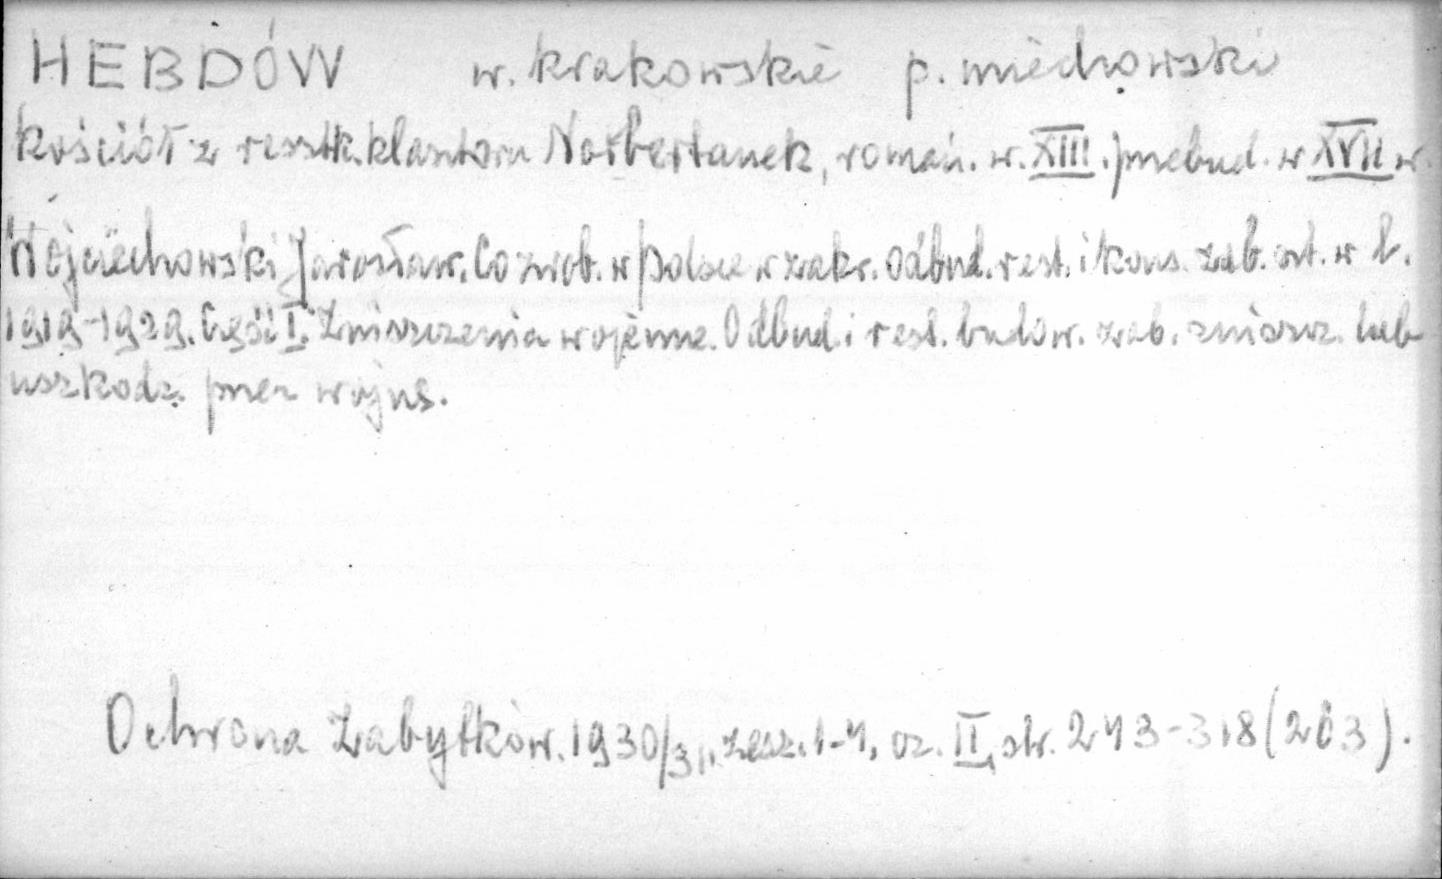 HEBDÓW w. krakowskie p. miechowski
kościół z resztk. klasztoru Norbertanek, romań. w. XIII. przebud. w XVII w.
Wojciechowski Jarosław. Co zrob. w Polsce w zakr. odbud. rest. i kons. zab. ort. w l.
1919-1929. Część I. Zniszczenia wojenne. Odbud. i rest. budow. zab. zniszcz. lub
uszkodz. przez wojnę.
Ochrona Zabytków. 1930/31. zesz. 1-4, cz. II, str. 243-318 (263).